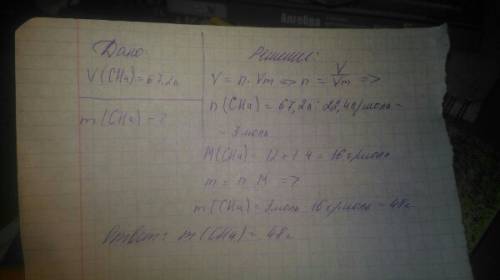 Дано
V(CH4)=67,2л
m(CH4)=?
Решение:
V = n · Vm => n = V/Vm =>
n(CH4) = 67,2л : 22,4л/моль =
= 3 моль
M(CH4) = 12 + 1 · 4 = 16 г/моль
m = n · M =>
m(CH4) = 3моль · 16 г/моль = 48г
Ответ: m(CH4) = 48г